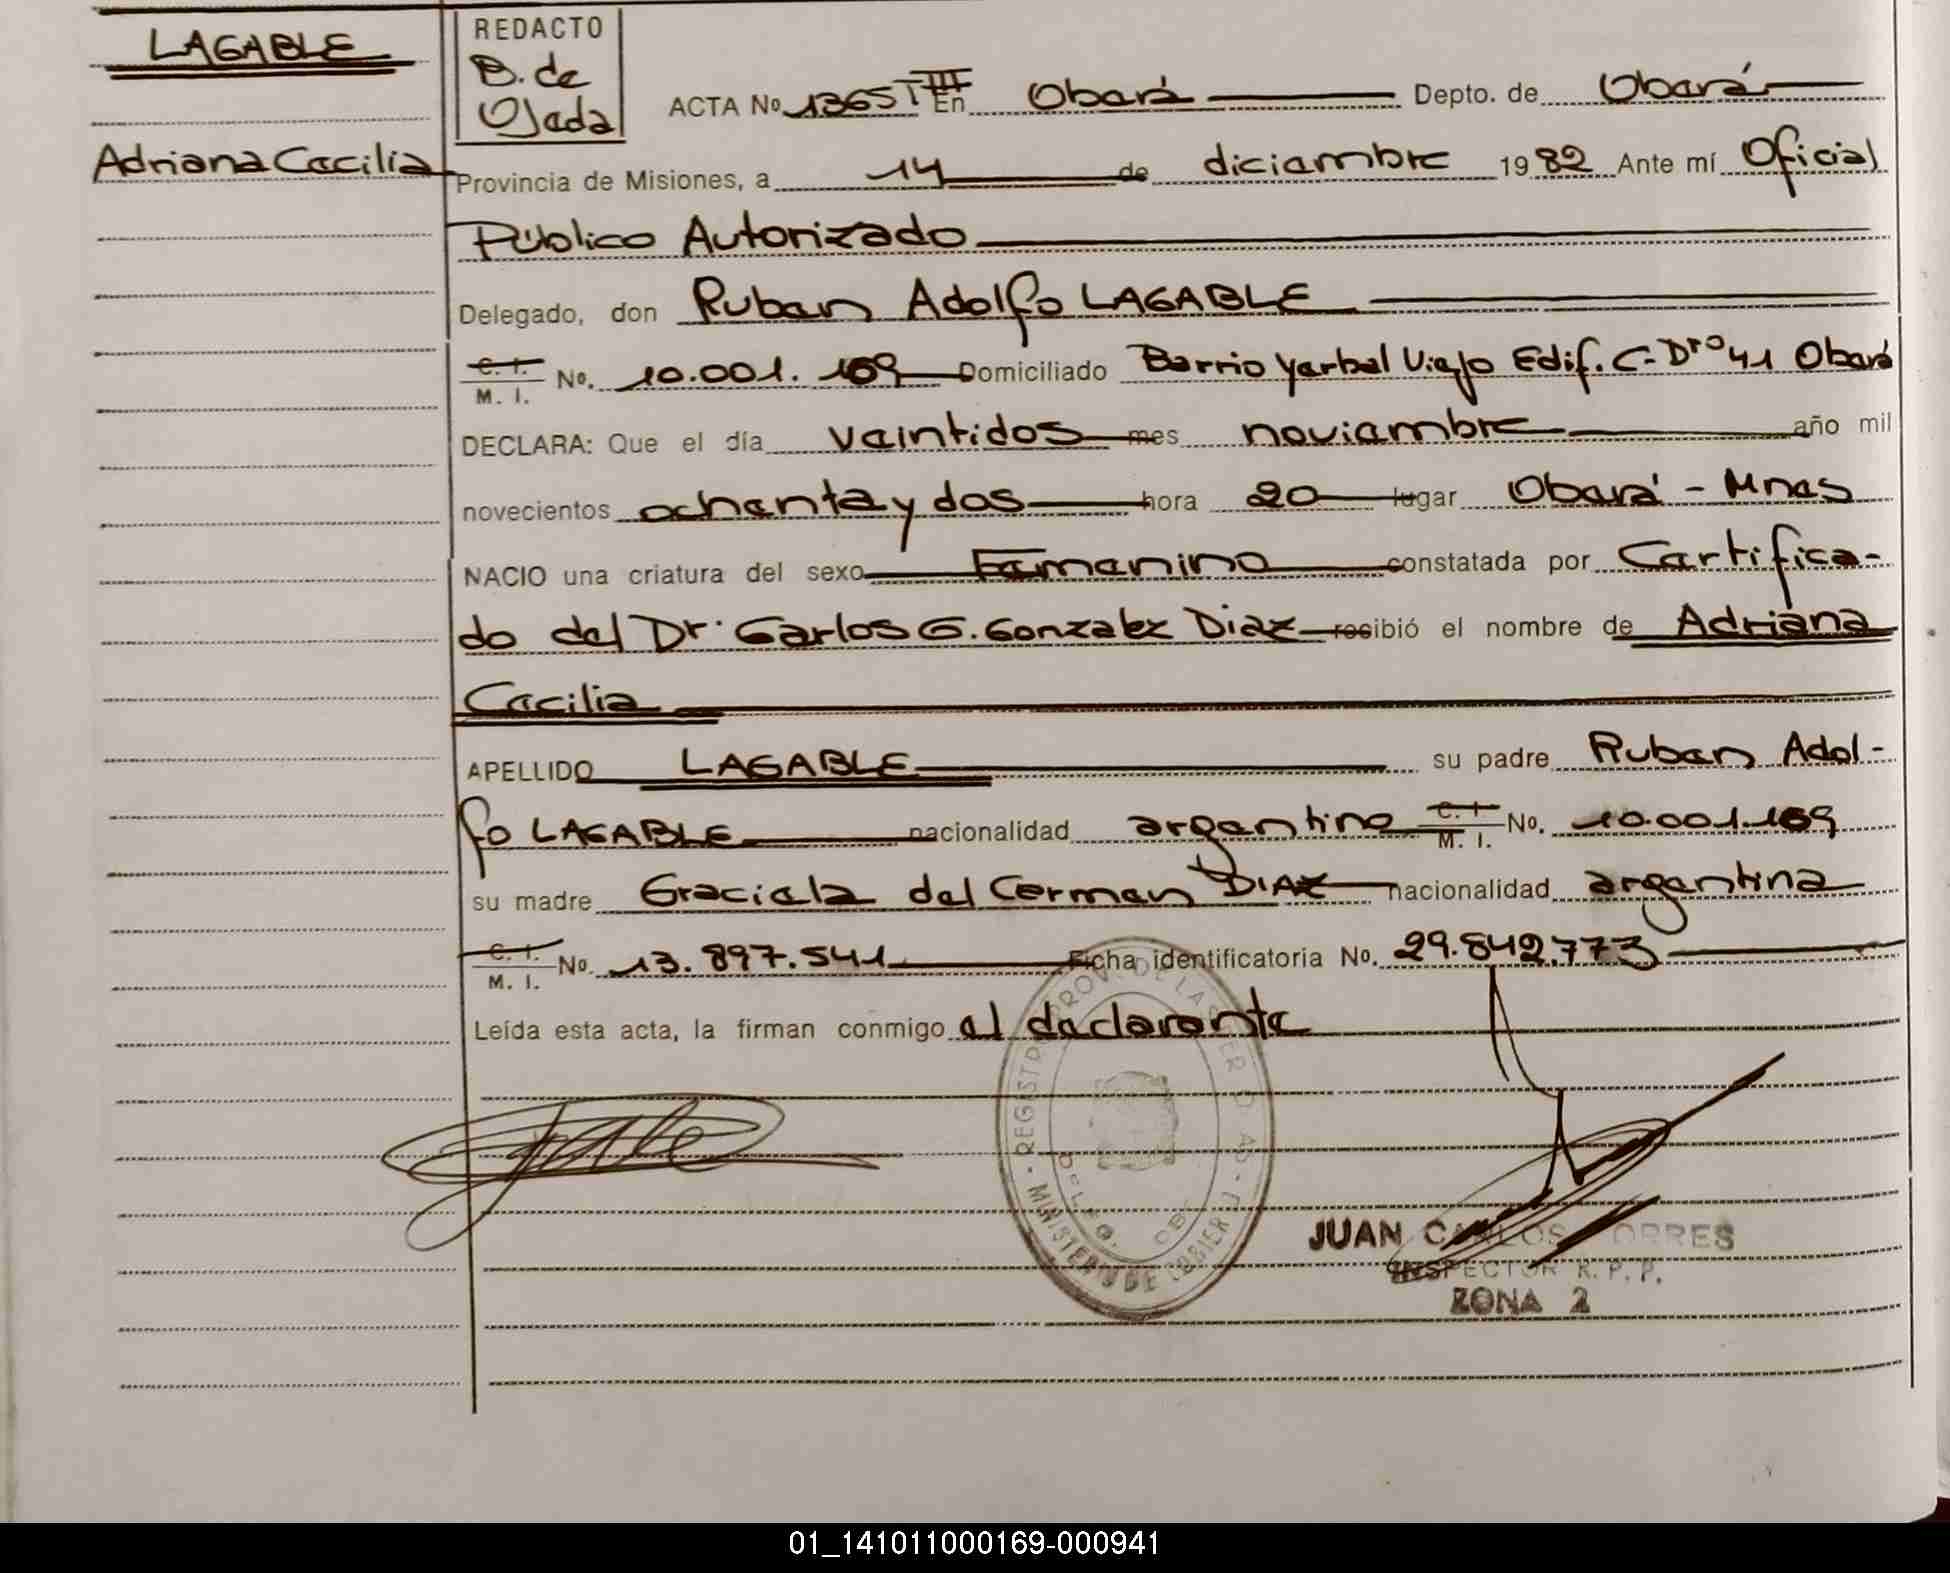 LAGABLE
Adriana Cecilia
REDACTO
B. de
Ojeda
ACTA No 1365 T III En Oberá Depto. de Oberá
Provincia de Misiones, a 14 de diciembre 1982 Ante mí Oficial
Público Autorizado
Delegado, don Ruben Adolfo LAGABLE
C. I. / M. I. No. 10.001.169 Domiciliado Barrio Yerbal Viejo Edif. C-Dtº 41 Oberá
DECLARA: Que el día veintidos mes noviembre año mil
novecientos ochenta y dos hora 20 lugar Oberá - Mnes
NACIO una criatura del sexo Femenino constatada por Certifica-
do del Dr. Carlos G. Gonzalez Diaz recibió el nombre de Adriana
Cecilia
APELLIDO LAGABLE su padre Ruben Adol-
fo LAGABLE nacionalidad argentino C. I. / M. I. No. 10.001.169
su madre Graciela del Carmen DIAZ nacionalidad argentina
C. I. / M. I. No. 13.897.541 Ficha identificatoria No. 29.842.773
Leída esta acta, la firman conmigo el declarante
JUAN CARLOS TORRES
INSPECTOR R. P. P.
ZONA 2
01_141011000169-000941